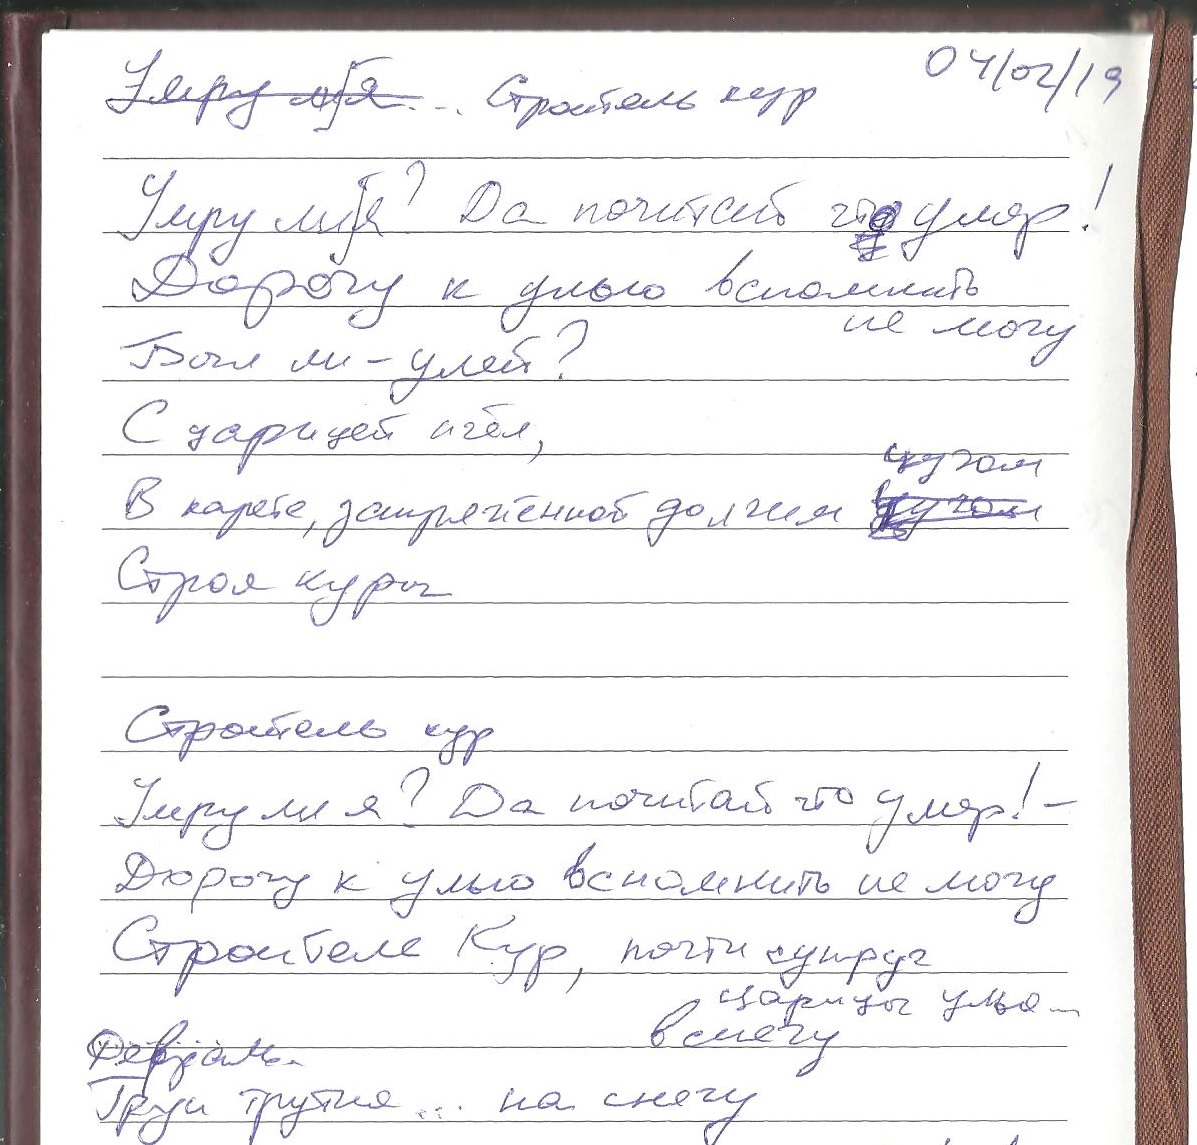 04/02/19
Умру ли я... Строитель кур
Умру ли я? Да почитай что умер!
Дорогу к улью вспомнить
не могу
Был ли – улей?
С царицей пчёл,
цугом
В карете, запряжённой долгим цугом
Строя куры
Строитель кур
Умру ли я? Да почитай что умер! –
Дорогу к улью вспомнить не могу
Строителе Кур, почти супруг
царицы улья...
в снегу
Февраль.
Труп трутня... на снегу